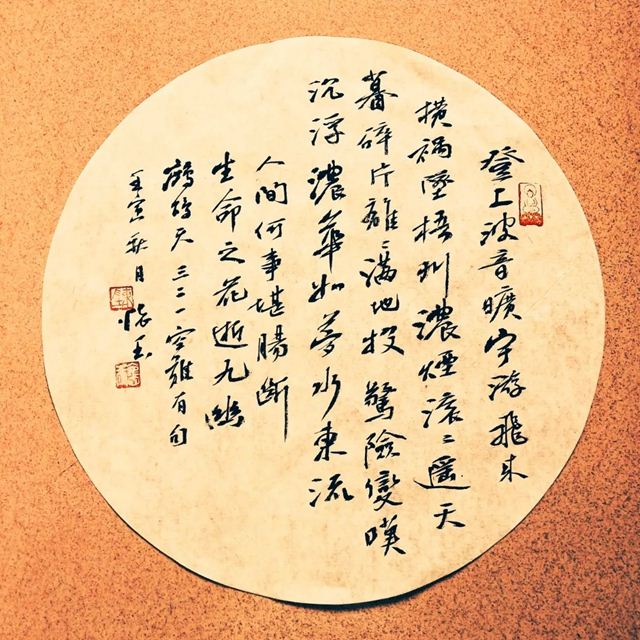 登上波音曠宇游飛來
橫禍墜梧州濃煙滾〻遥天
暮碎片離〻滿地投驚險變嘆
沉浮濃華如夢水東流
人間何事堪腸斷
生命之花逝九幽
鷓鴣天三二一空難有句
壬寅秋月